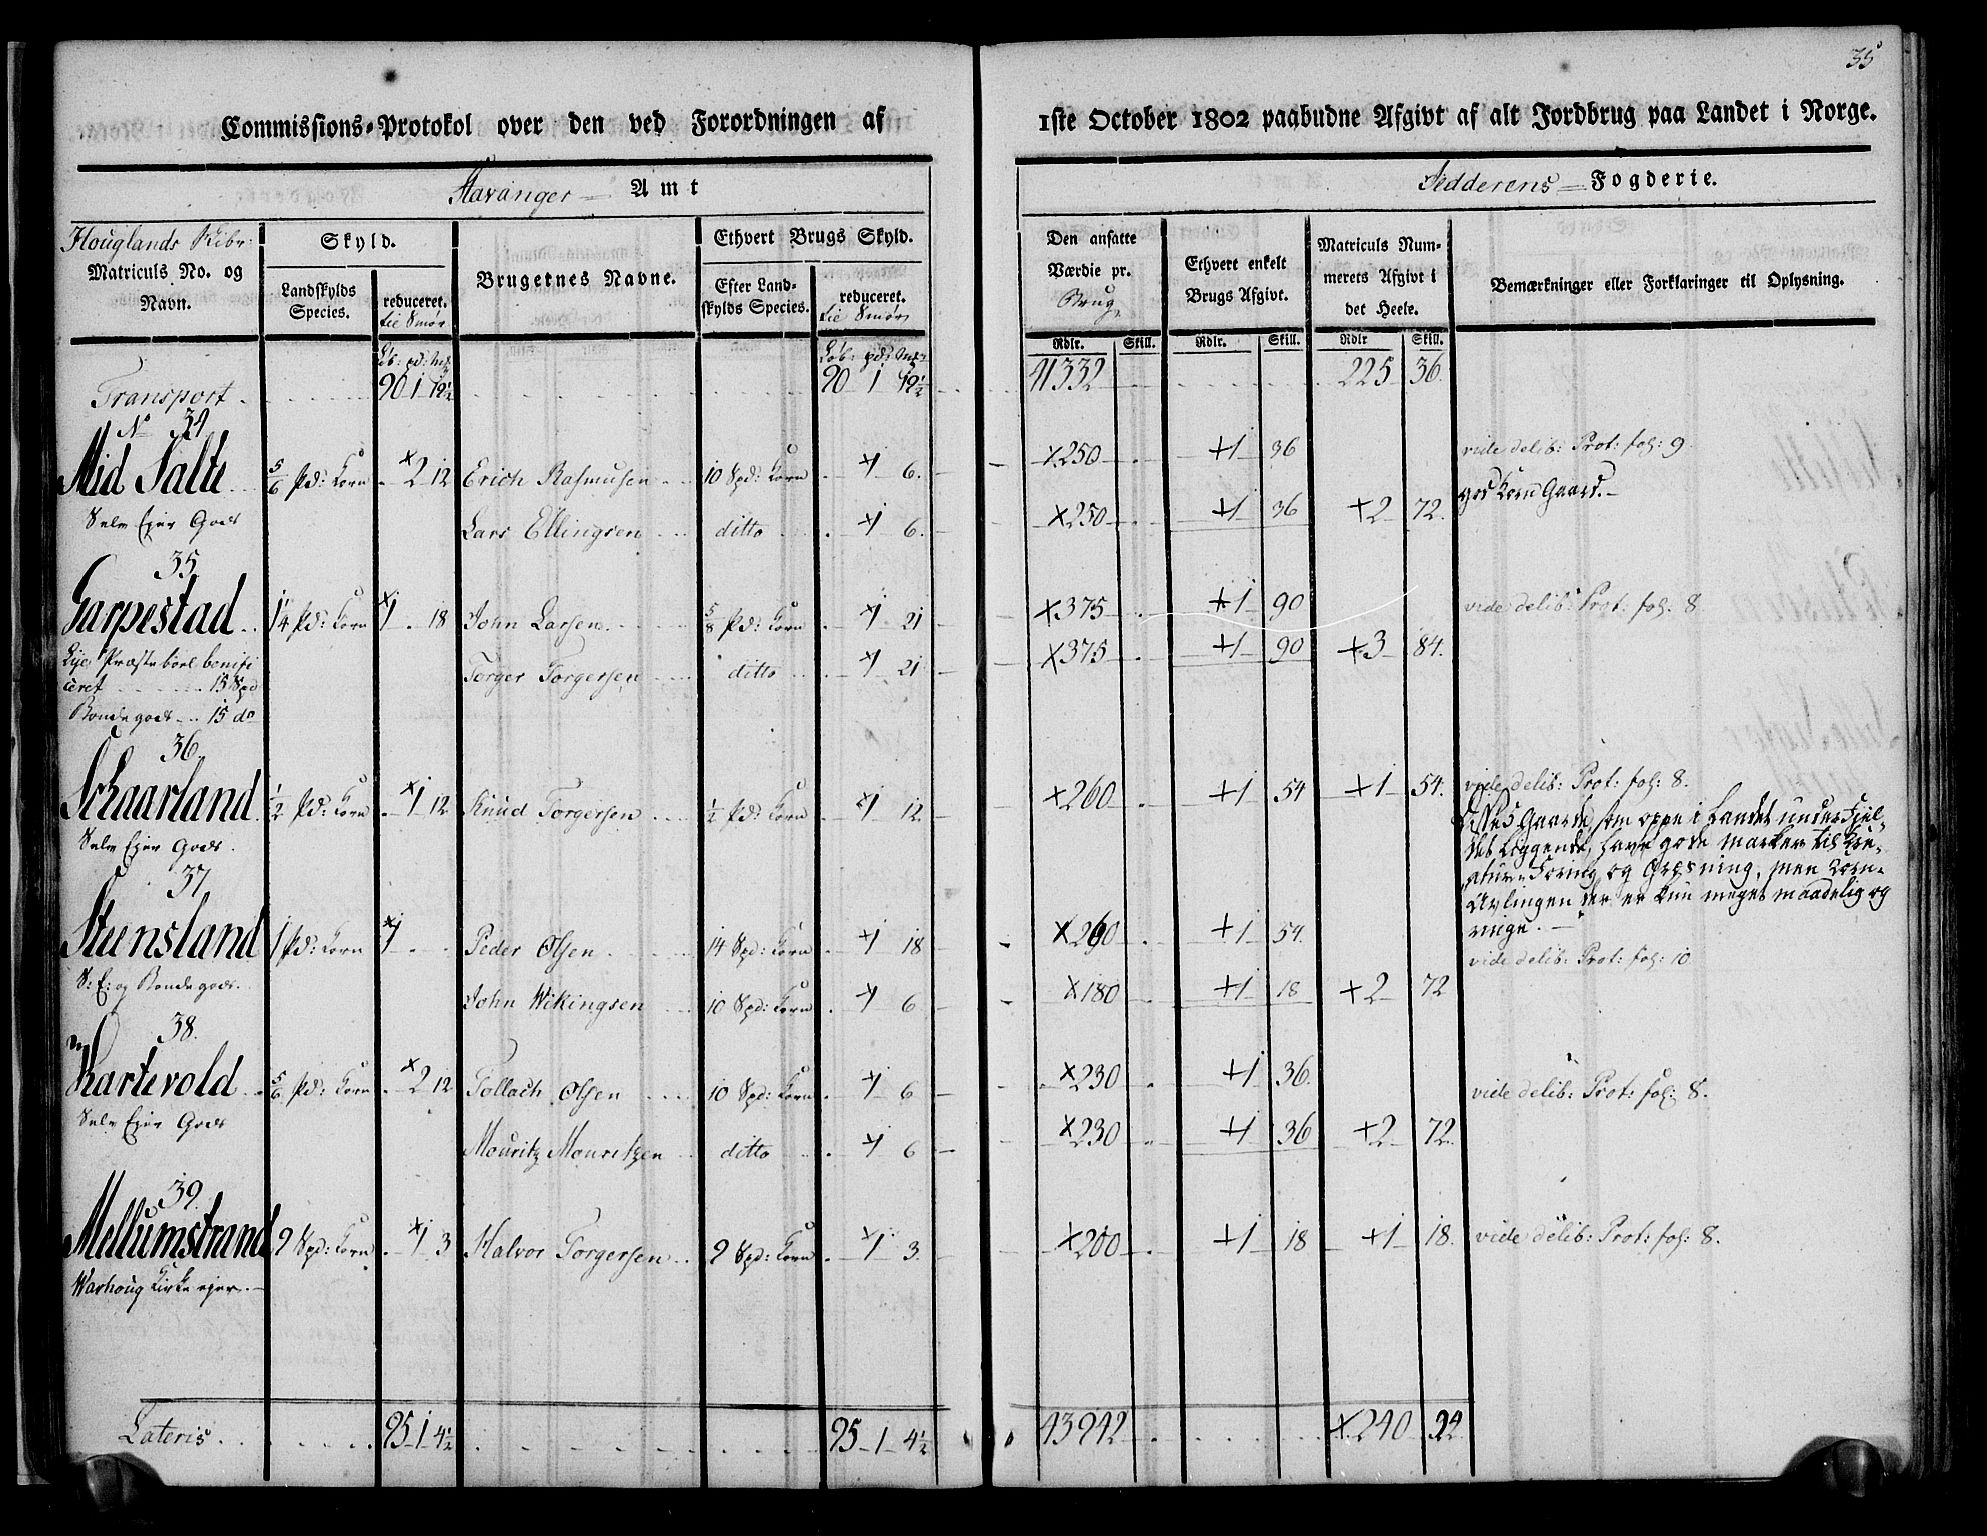 35
Commissions-Protokol over den ved Forordningen af 1ste October 1802 paabudne Afgivt af alt Jordbrug paa Landet i Norge.
Stavanger Amt
Jedderens Fogderie.
Houglands Kibr:
Matriculs No. og Navn.
Skyld.
Landskylds Species.
reduceret. tie Smør
Brugernes Navne.
Ethvert Brugs Skyld.
Efter Landskylds Species.
reduceret. tie Smør
Den ansatte Værdie pr. Brug
Ethvert enkelt Brugs Afgivt.
Matriculs Nummerets Afgivt i det Heele.
Bemærkninger eller Forklaringer til Oplysning.
Rdlr. Skill. Rdlr. Skill. Rdlr Skill.
Transport 90 1 19½ 90 1 19½ 41332 225 36
No 34
Mid Salte 5/6 Pd: Korn 2 12 Erich Rasmusen 10 Spd: Korn 1 6 250 1 36 vide delib: Prot: fol: 9
god Korn Gaard.
Selv Ejer Gods Lars Ellingsen ditto 1 6 250 1 36 2 72
35
Garpestad 1¼ Pd: Korn 1 18 John Larsen 5/8 Pd: Korn 1 21 375 1 90 vide delib: Prot: fol: 8
Lye Præsteboel benifi
ceret 15 Spd Torger Torgersen ditto 1 21 375 1 90 3 84
Bondegods 15 do
36
Schaarland ½ Pd: Korn 1 12 Knud Torgersen ½ Pd: Korn 1 12 260 1 54 1 54 vide delib: Prot: fol: 8.
Selv Ejer Gods
Disse 5 Gaarde, som oppe i Landet under Fjel-
det Liggende, have gode marker til Kre-
atur-Foring og Græsning, men Korn-
Avlingen der er kun meget maadelig og
ringe.
37
Steensland 1 Pd: Korn 1 Peder Olsen 14 Spd: Korn 1 18 260 1 54 vide delib: Prot: fol: 10
S: E: og Bondegods. John Wikingsen 10 Spd: Korn 1 6 180 1 18 2 72
38.
Kartevold 5/6 Pd: Korn 2 12 Tollach Olsen 10 Spd: Korn 1 6 230 1 36 vide delib: Prot: fol: 8.
Selv Ejer Gods Mouritz Mouritzen ditto 1 6 230 1 36 2 72
39.
Mellumstrand 9 Spd: Korn 1 3 Halvor Torgersen 9 Spd: Korn 1 3 200 1 18 1 18 vide delib: Prot: fol: 8.
Warhoug Kirke ejer.
Lateris 95 1 4½ 95 1 4½ 43942 240 24